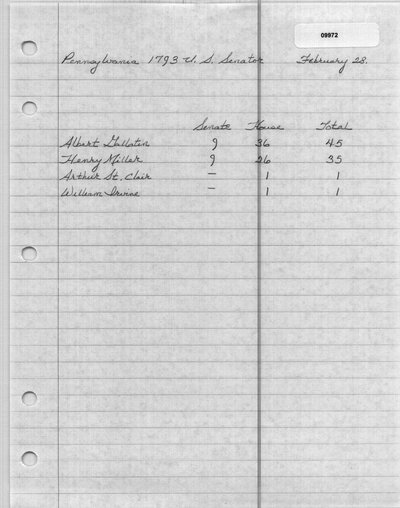 09972
Pennsylvania 1793 U. S. Senator February 28.
Senate House Total
Albert Gallatin 9 36 45
Henry Miller 9 26 35
Arthur St. Clair — 1 1
William Irvine — 1 1